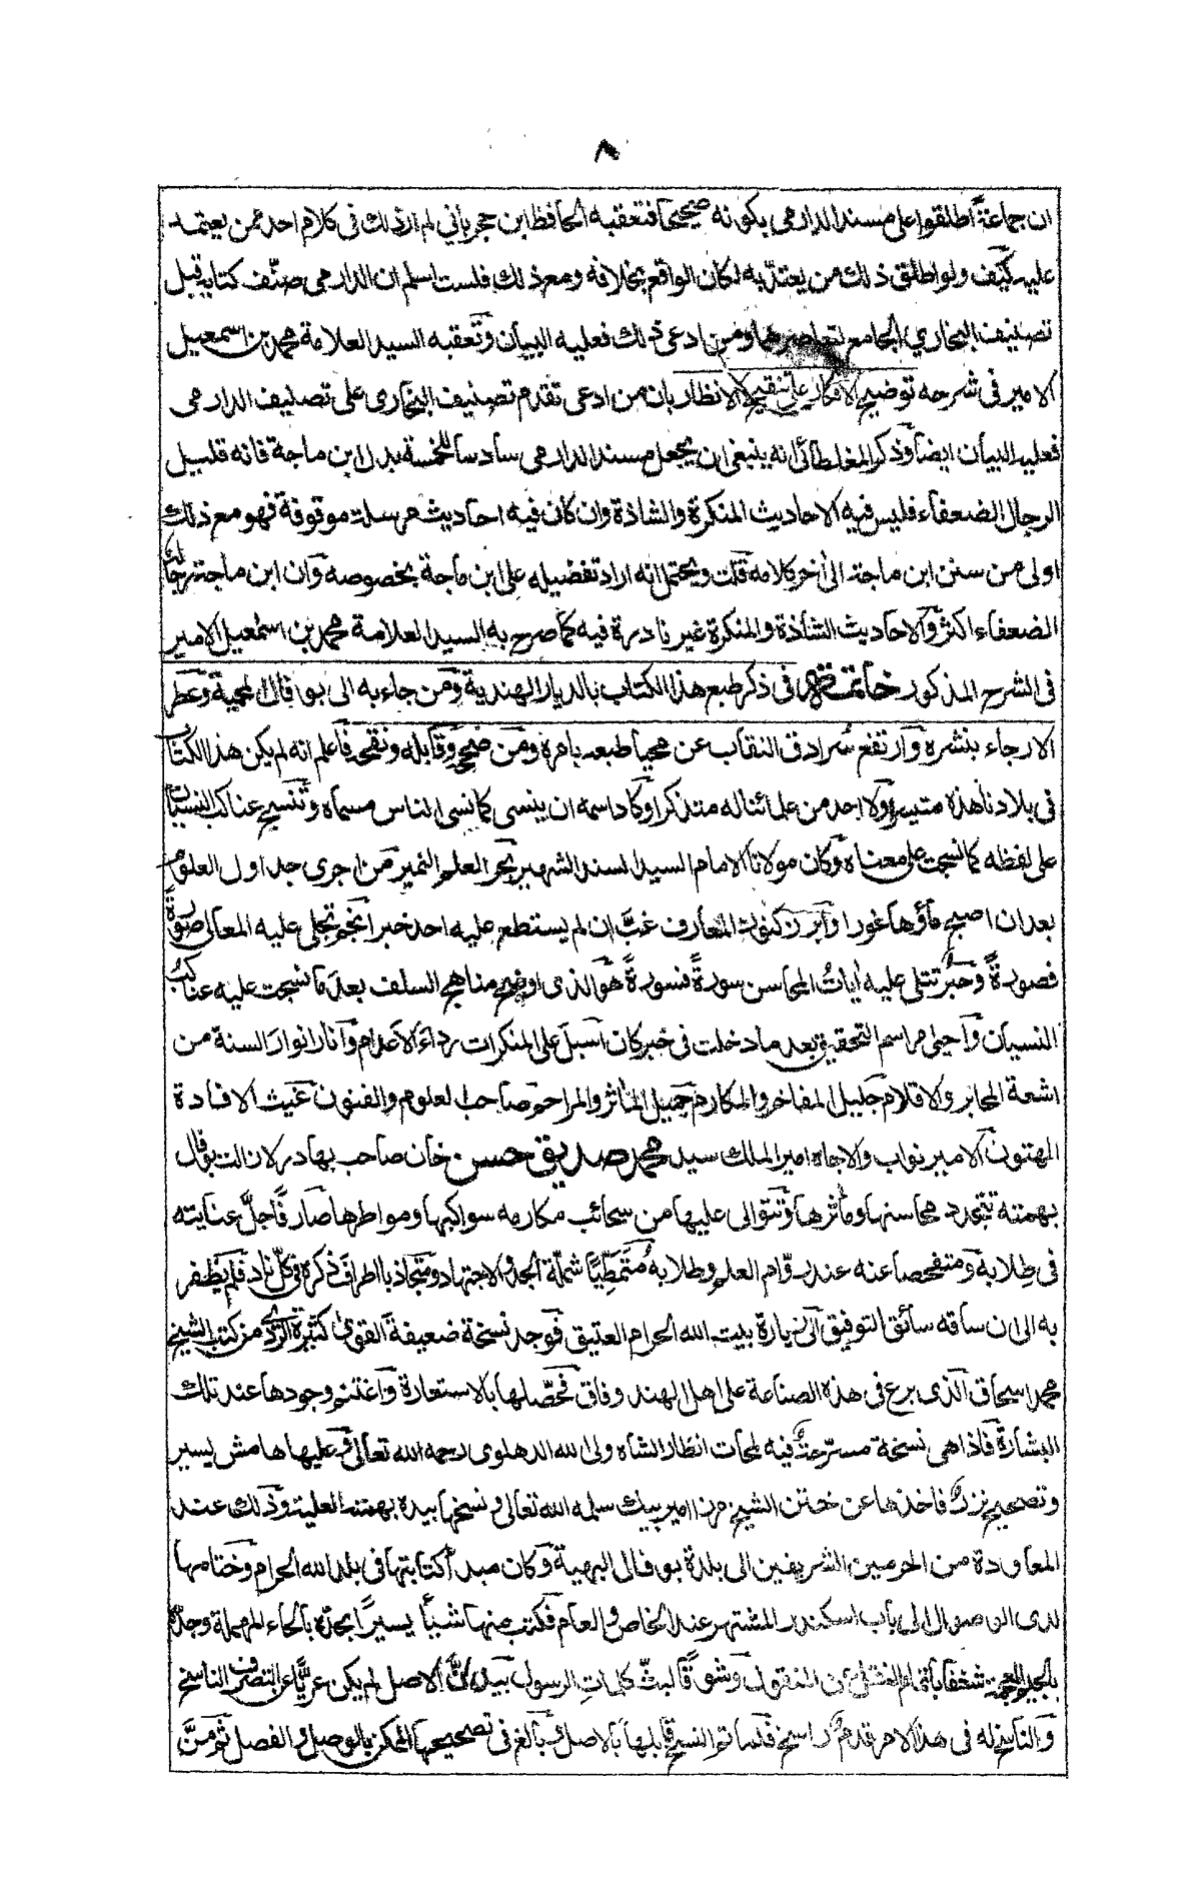 ٨
ان جماعةً اطلقوا على مسند الدارمى بكونه صحيحاً فتعقبه الحافظ ابن حجر بأني لم ار ذلك فى كلام احد ممن يعتمد
عليه كيف ولو اطلق ذلك من يعتد به لكان الواقع بخلافه ومع ذلك فلست اسلم ان الدارمى صنّف كتابه قبل
تصنيف البخاري الجامع لتعاصرهما ومن ادعى ذلك فعليه البيان وتعقبه السيد العلامة محمد بن اسمعيل
الامير فى شرحه توضيح الافكار على تنقيح الانظار بان من ادعى تقدم تصنيف البخارى على تصنيف الدارمى
فعليه البيان ايضاً وذكر المغلطائى انه ينبغى ان يجعل مسند الدارمى سادساً للخمسة بدل ابن ماجة فانه قليل
الرجال الضعفاء فليس فيه الاحاديث المنكرة والشاذة وان كان فيه احاديث مرسلة موقوفة فهو مع ذلك
اولى من سنن ابن ماجة الى أخر كلامه قلت ويحتمل انه اراد تفضيله على ابن ماجة بخصوصه وان ابن ماجة رجاله
الضعفاء اكثر والاحاديث الشاذة والمنكرة غير نادرة فيه كما صرح به السيد العلامة محمد بن اسمعيل الامير
فى الشرح المذكور خاتمة فى ذكر طبع هذا الكتاب بالديار الهندية ومن جاء به الى بوفال المحمية وعطر
الارجاء بنشره وارتفع سُرادق النقاب عن محيا طبعه بامره ومن صححه وقابله ونقحه فاعلم انه لم يكن هذا الكتاب
فى بلادنا هذه متيسراً ولا احد من علمائنا له متذكرا وكاد اسمه ان ينسى كما نسى الناس مسماه وتنسج عناكب النسيان
على لفظه كما نسجت على معناه وكان مولانا الامام السيد السند الشهير بحر العلم النمير من اجرى جداول العلوم
بعد ان اصبح ماؤها غورا وابرز كنوز المعارف غبَّ ان لم يستطع عليه احد خبرا نجم تجلى عليه المعالى صورةً
فصورةً وحَبْرٌ تتلى عليه أياتُ المحاسن سورةً فسورةً هو الذى اوضح مناهج السلف بعد ما نسجت عليه عناكبُ
النسيان واحيى مراسم التحقيق بعد ما دخلت فى خبر كان اسبل على المنكرات رداء الاعدام وانار انوار السنة من
اشعة المحابر والاقلام جليل المفاخر والمكارم جميل المأثر والمراحم صاحب العلوم والفنون غيث الافادة
الهتون الامير نواب والاجاه امير الملك سيد محمد صديق حسن خان صاحب بهادر لازالت بوفال
بهمته تتجدد محاسنها ومأثرها وتتوالى عليها من سحائب مكارمه سواكبها ومواطرها صارفًا جلَّ عنايته
فى طلابه ومتفحصا عنه عند روّام العلم وطلابه مُتَمَطِّيًا شملة الجد والاجتهاد ومتجاذبا اطراف ذكره فى كلّ ناد فلم يظفر
به الى ان ساقه سائق التوفيق الى زيارة بيت الله الحرام العتيق فوجد نسخة ضعيفة القوى كثيرة الردى من كتب الشيخ
محمد اسحاق الذى برع فى هذه الصناعة على اهل الهند وفاق فحصّلها بالاستعارة واغتنم وجودها عند تلك
البشارة فاذا هى نسخة مسرّحةٌ فيه لمحات انظار الشاه ولى الله الدهلوى رحمه الله تعالى وعليها هامش يسير
وتصحيح نزرٌ فاخذها عن ختن الشيخ مرزا امير بيك سلمه الله تعالى ونسخها بيده بهمته العلية وذلك عند
المعاودة من الحرمين الشريفين الى بلدة بوفال البهية وكان مبدأ كتابتها فى بلد الله الحرام وختامها
لدى الوصول الى باب اسكندر المشتهر عند الخاص والعام فكتب منها شيئًا يسيرًا بحدّه بالحاء المهملة وجدّه
بالجيم المعجمة شغفا باتمام المنقول وشوقًا لبثّ كلمات الرسول بيد انَّ الاصل لم يكن عريًّا عن التصرف الناسخ
والناسخ له فى هذا الامر قدمٌ راسخ فلما تم النسخ قابلها بالاصل وبالغ فى تصحيحها الممكن بالوصل والفصل ثم منَّ